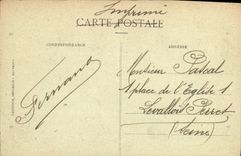 Imprimé
CARTE POSTALE
CORRESPONDANCE
ADRESSE
Fernand
Monsieur Pascal
1 place de l'Eglise 1
Levallois Perret
(Seine)